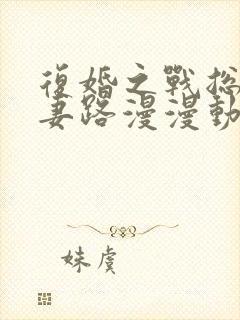 復婚之戰總
妻路漫漫動
妹虞